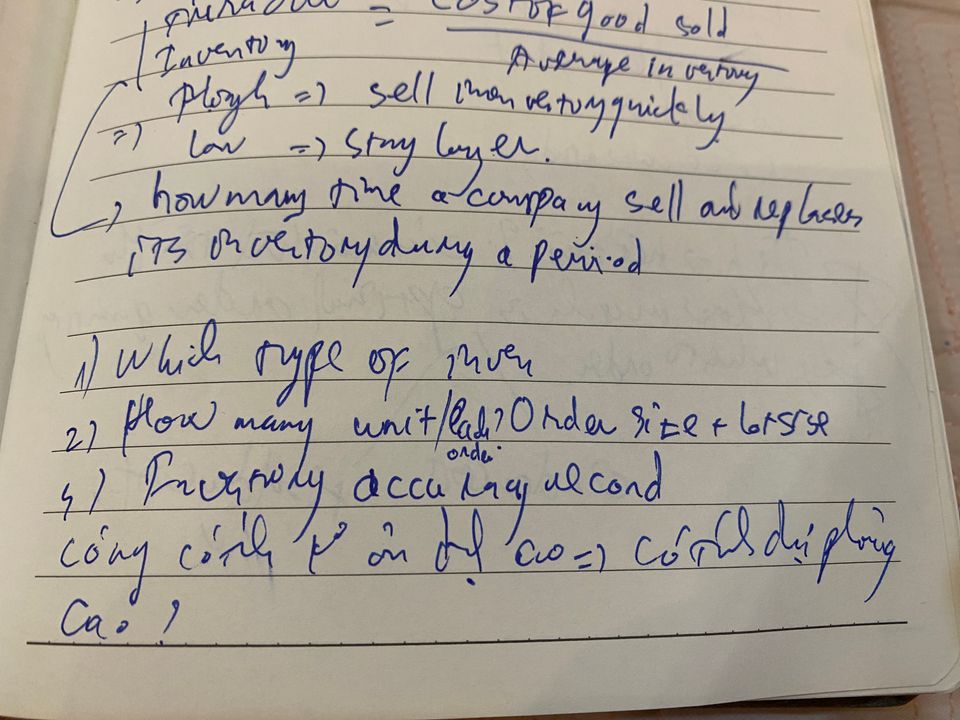 = Cost of good sold
Inventory Average inventory
High => sell inventory quickly
=> Low => stay layer.
-> how many time a company sell and replaces
its inventory during a period
1) Which type of inven
2) How many unit/each order? Order size + lotsize
Inventory accuracy record
công có tính ổn định cao => có tính dự phòng
Cao